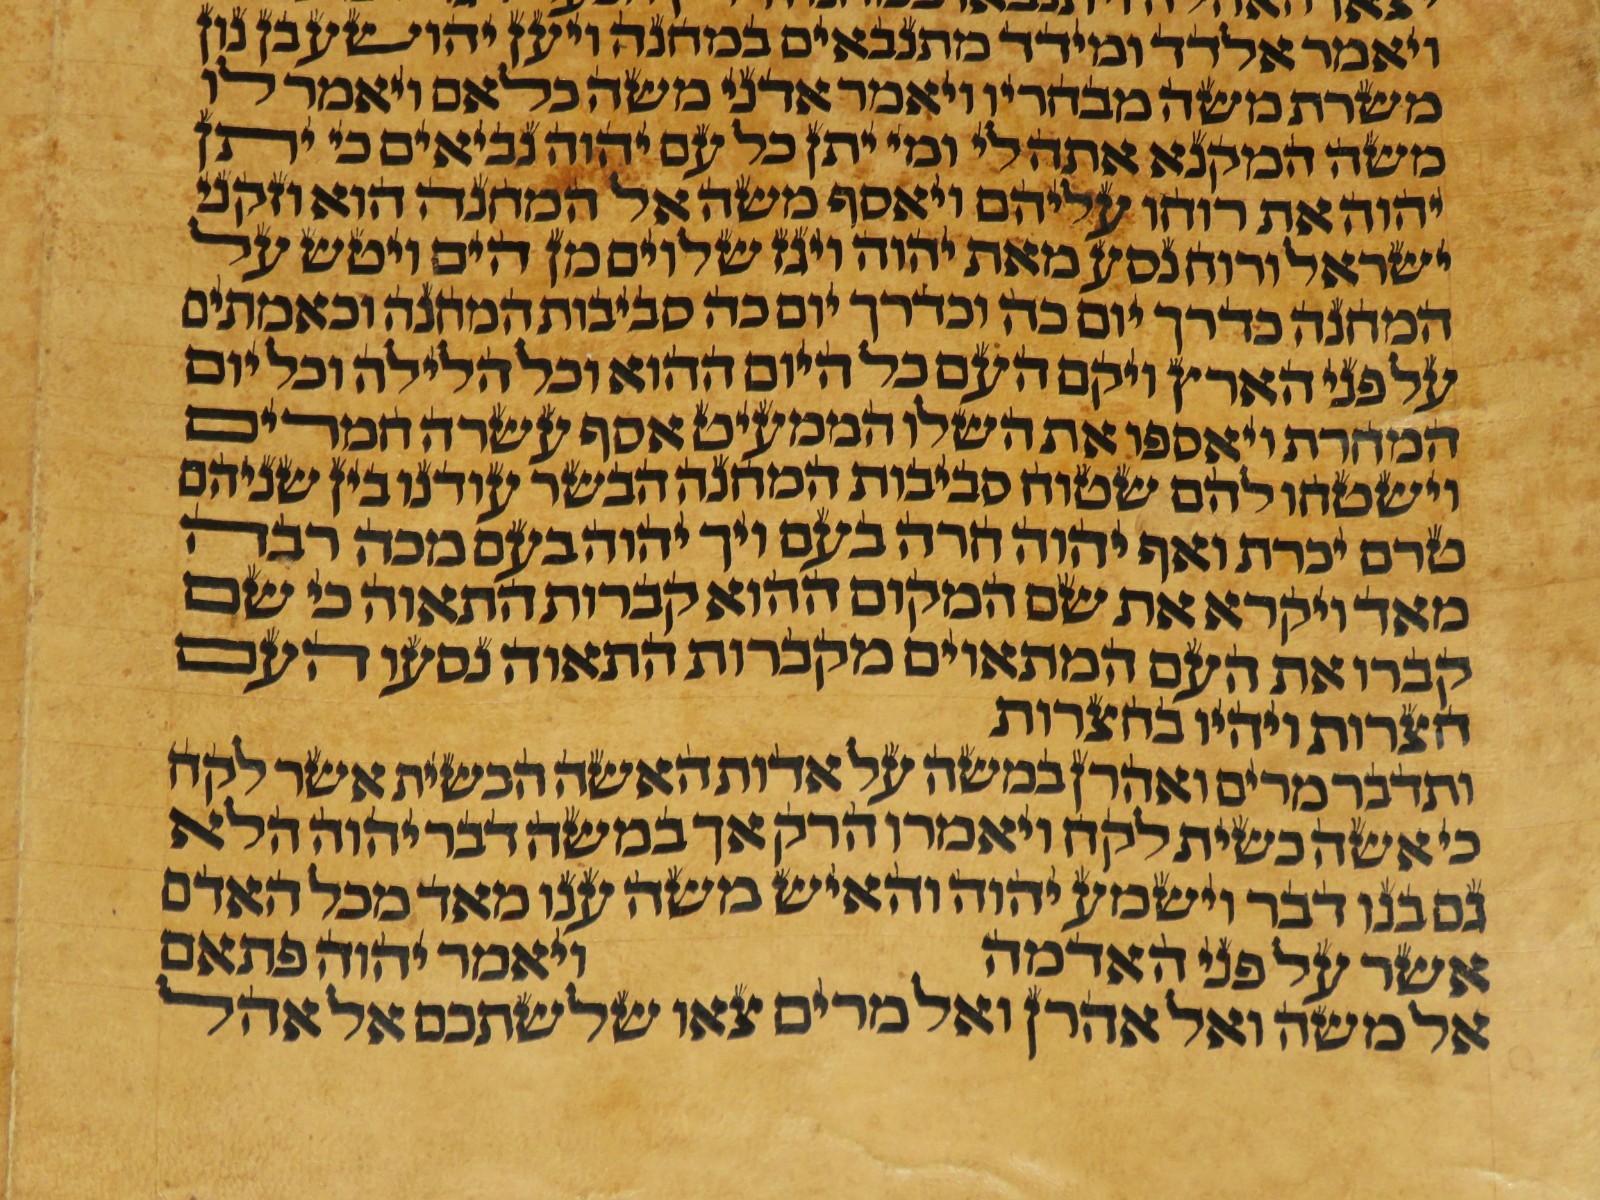 ויאמר אלדד ומידד מתנבאים במחנה ויען יהושע בן נון
משרת משה מבחריו ויאמר אדני משה כלאם ויאמר לו
משה המקנא אתה לי ומי יתן כל עם יהוה נביאים כי יתן
יהוה את רוחו עליהם ויאסף משה אל המחנה הוא וזקני
ישראל ורוח נסע מאת יהוה ויגז שלוים מן הים ויטש על
המחנה כדרך יום כה וכדרך יום כה סביבות המחנה וכאמתים
על פני הארץ ויקם העם כל היום ההוא וכל הלילה וכל יום
המחרת ויאספו את השלו הממעיט אסף עשרה חמרים
וישטחו להם שטוח סביבות המחנה הבשר עודנו בין שניהם
טרם יכרת ואף יהוה חרה בעם ויך יהוה בעם מכה רבה
מאד ויקרא את שם המקום ההוא קברות התאוה כי שם
קברו את העם המתאוים מקברות התאוה נסעו העם
חצרות ויהיו בחצרות
ותדבר מרים ואהרן במשה על אדות האשה הכשית אשר לקח
כי אשה כשית לקח ויאמרו הרק אך במשה דבר יהוה הלא
גם בנו דבר וישמע יהוה והאיש משה ענו מאד מכל האדם
אשר על פני האדמה ויאמר יהוה פתאם
אל משה ואל אהרן ואל מרים צאו שלשתכם אל אהל